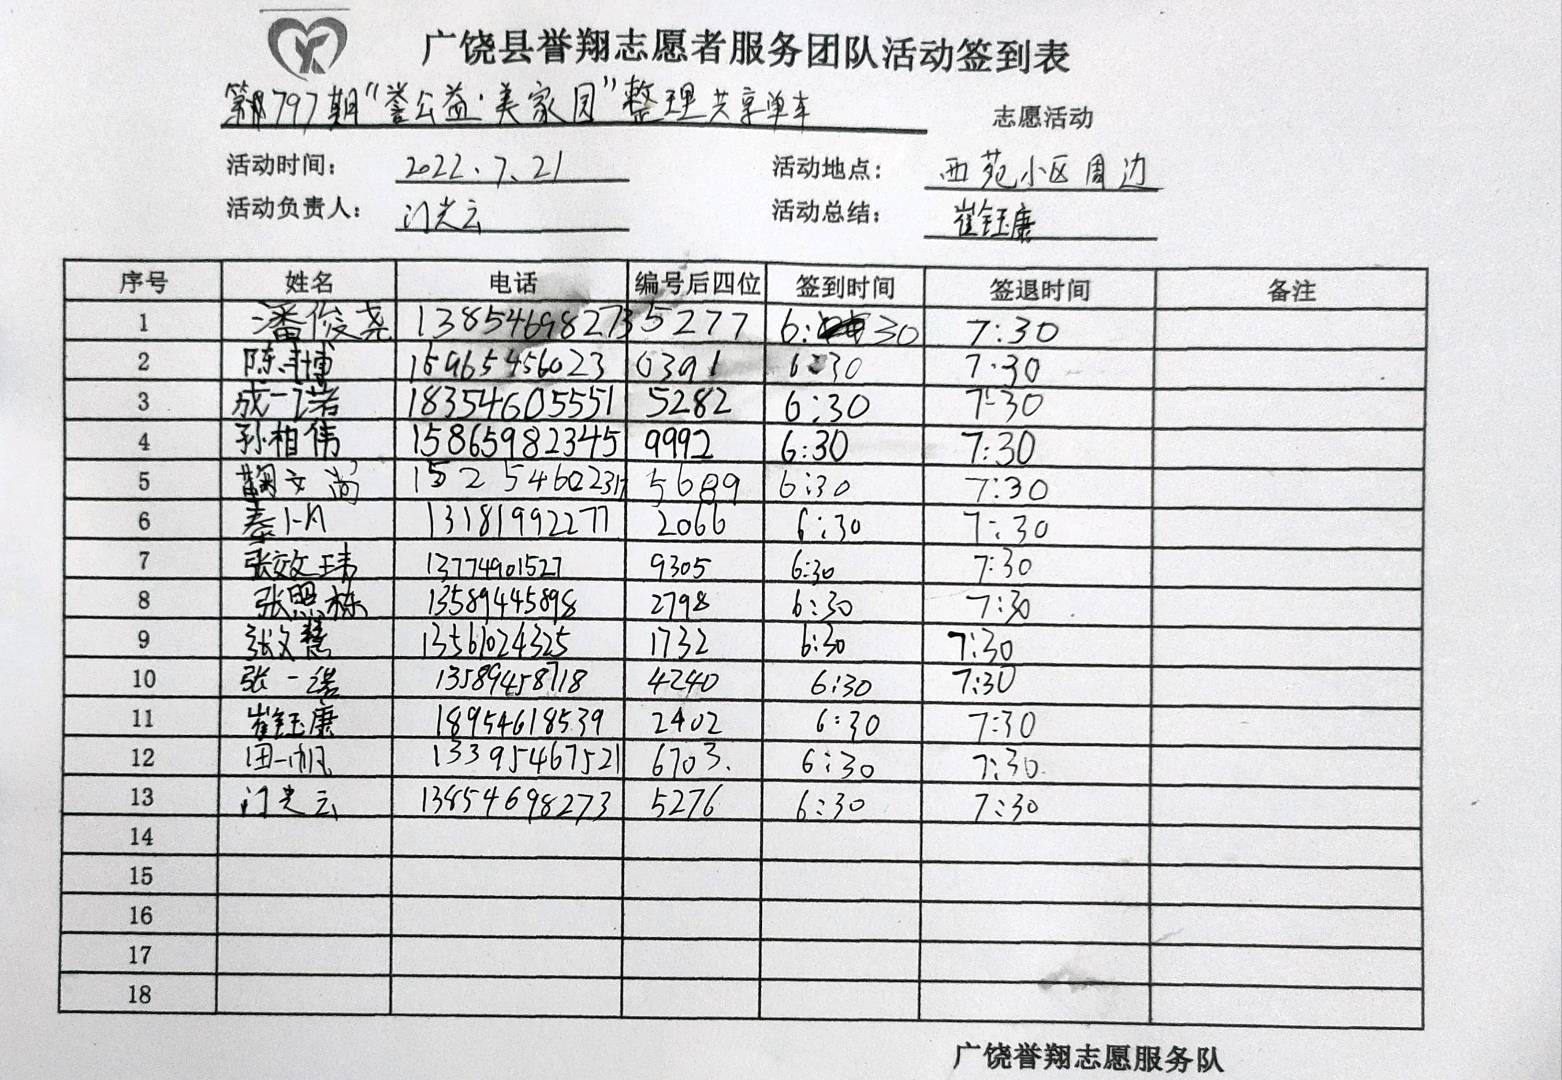 广饶县誉翔志愿者服务团队活动签到表
第797期“誉公益·美家园”整理共享单车 志愿活动
活动时间: 2022.7.21 活动地点: 西苑小区周边
活动负责人: 门光云 活动总结: 崔钰康
序号 姓名 电话 编号后四位 签到时间 签退时间 备注
1 潘俊尧 13854698273 5277 6:30 7:30
2 陈博 15965456023 0391 6:30 7:30
3 成一诺 18354605551 5282 6:30 7:30
4 孙相伟 15865982345 9992 6:30 7:30
5 鞠文尚 5689 6:30 7:30
6 秦 13181992277 2066 6:30 7:30
7 张效玮 13774901527 9305 6:30 7:30
8 张照栋 13589445898 2798 6:30 7:30
9 张文慧 13561024325 1732 6:30 7:30
10 张一诺 13589458718 4240 6:30 7:30
11 崔钰康 18954618539 2402 6:30 7:30
12 田一帆 13395467521 6703. 6:30 7:30
13 门光云 13854698273 5276 6:30 7:30
14
15
16
17
18
广饶誉翔志愿服务队